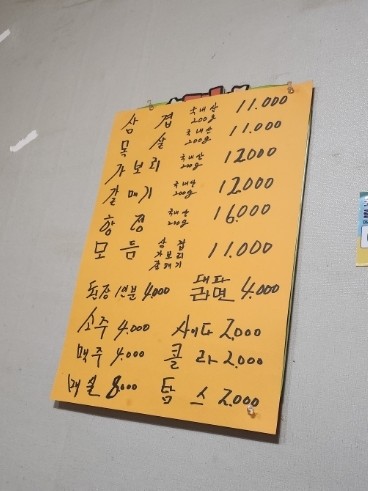 삼겹 국내산 200g 11.000
목살 국내산 200g 11.000
가보리 국내산 200g 12.000
갈매기 국내산 200g 12.000
항정 국내산 200g 16.000
모듬 삼겹 가보리 갈매기 11.000
된장 1인분 4.000 대파라면 4.000
소주 4.000 사이다 2,000
맥주 4.000 콜라 2.000
매실 8.000 탐스 2.000